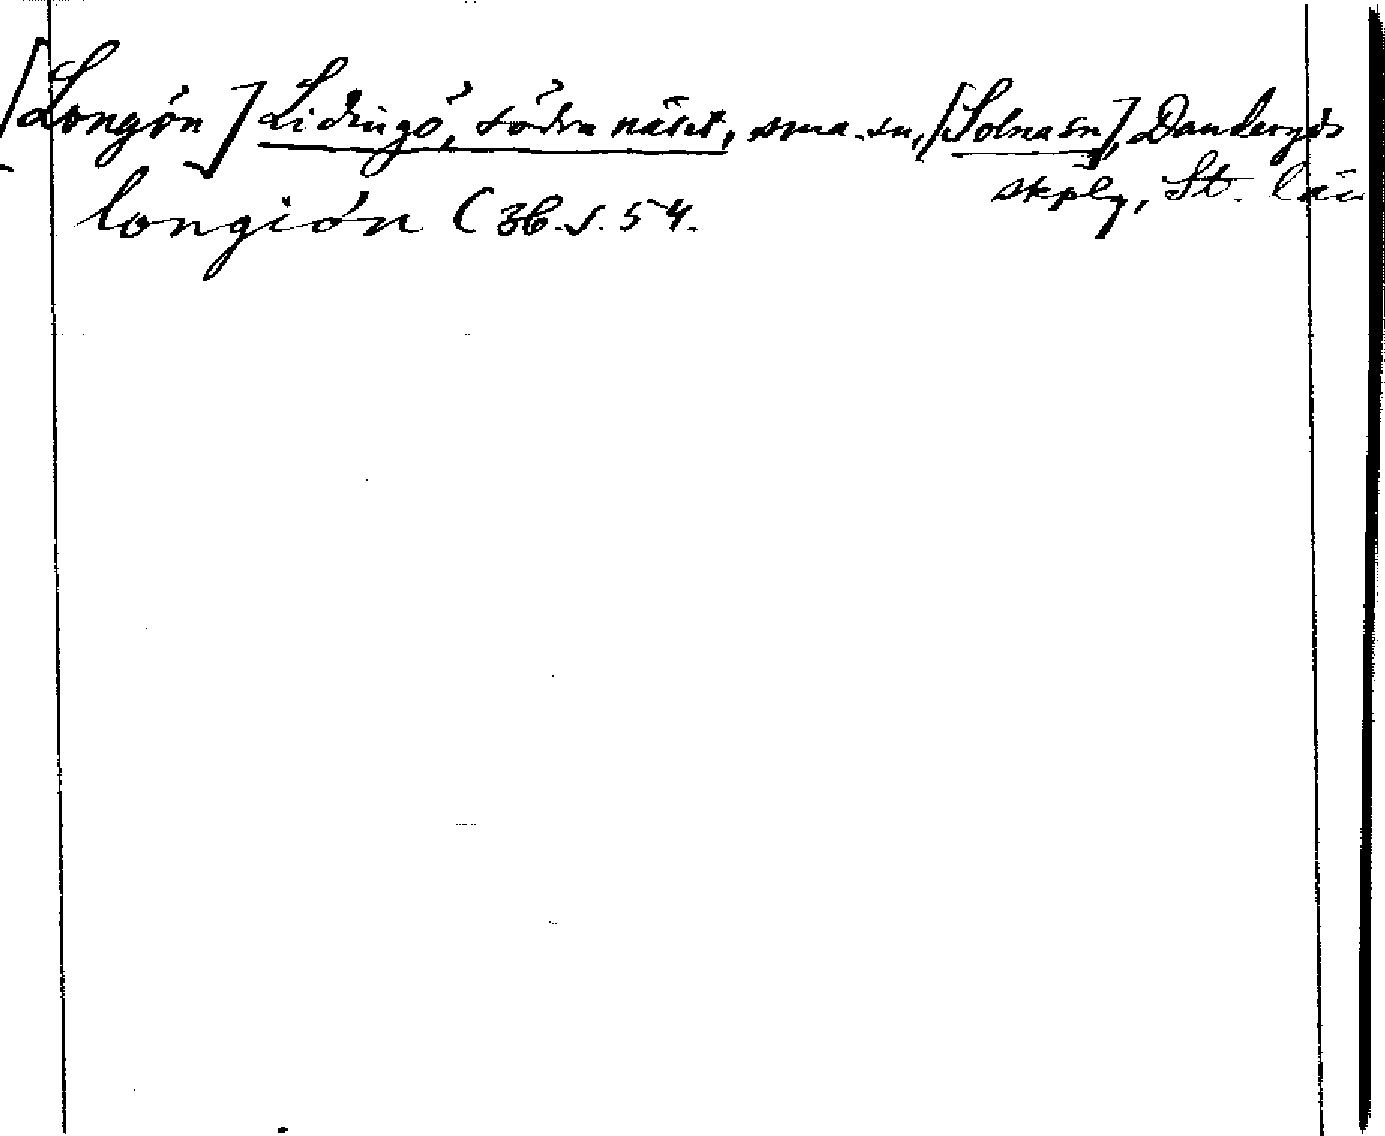 [Longön] Lidingö, södra näset, sma sn, [Solna sn], Danderyds
skplg, St. län
longión C 36. s. 54.